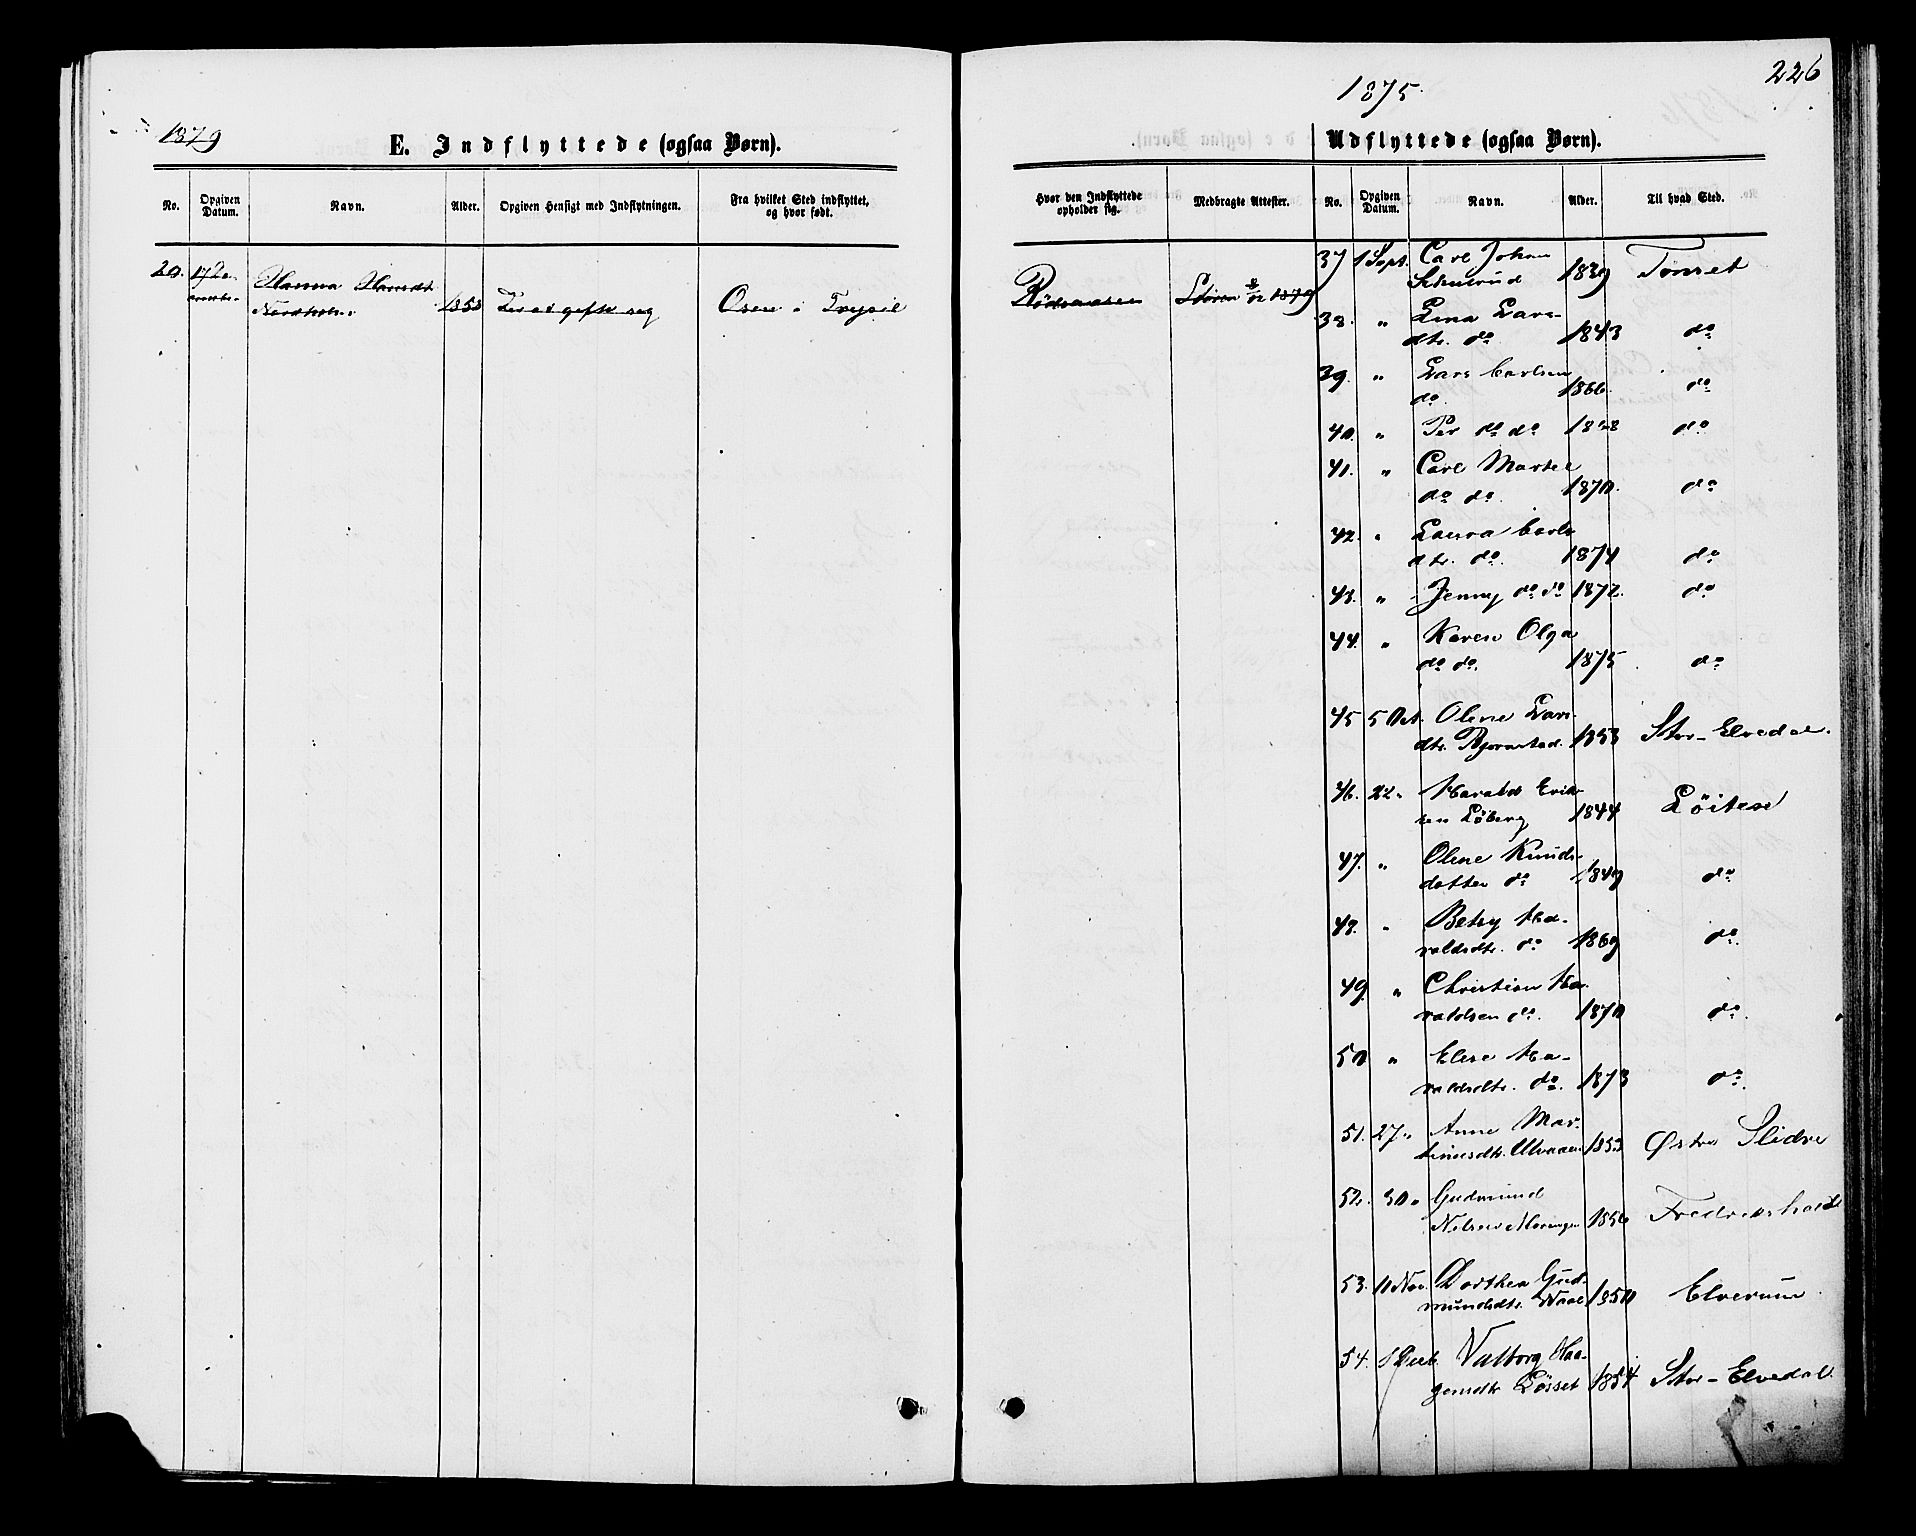 226
1875.
1879
E. Indflyttede (ogsaa Børn).
Udflyttede (ogsaa Børn).
No. Opgiven Datum. Navn. Alder. Opgiven Hensigt med Indflytningen. Fra hvilket Sted indflyttet, og hvor født.
Hvor den Indflyttede opholder sig. Medbragte Attester. No. Opgiven Datum. Navn. Alder. Til hvad Sted.
20. Hanna Hansdt.
1853 gifte sig Osen i Trysil
Rödsaasen 1879
37 1 Sept. Carl Johan
1839 Tönset
38. " Lina Lars-
dtr. do 1843 do
39. " Lars Carlsen
do. 1866 do
40. " Per do do do
41. " Carl
do do. 1870. do
42. " Laura Carls-
dtr. do. 1874 do
43. " Jenny do do 1872. do
44. " Karen Olga
do do. 1875 do
45 5 Oct. Olene Lars-
dtr. Bjørnstad. 1853 Stor-Elvedal.
46. 22 " Harald Erik-
sen Löberg 1844 Löiten
47. " Olene Knuds-
datter do 1849 do
48. " Betsy Ha-
raldsdtr. do 1869 do.
49. " Christian Ha-
raldsen do. 1870 do.
50 " Elise Ha-
raldsdtr. do. 1873 do.
51. 27 " Anne Mar-
tinusdtr. Ulvaaen 1853 Østre Slidre
52. 30 " Gudmund
Nilsen 1856 Fredrikshald
53. Nov. Dorthea Gud-
mundsdtr. 1850 Elverum.
54. 1 Decb. Valborg Haa-
gensdtr Lösset 1854 Stor-Elvedal.